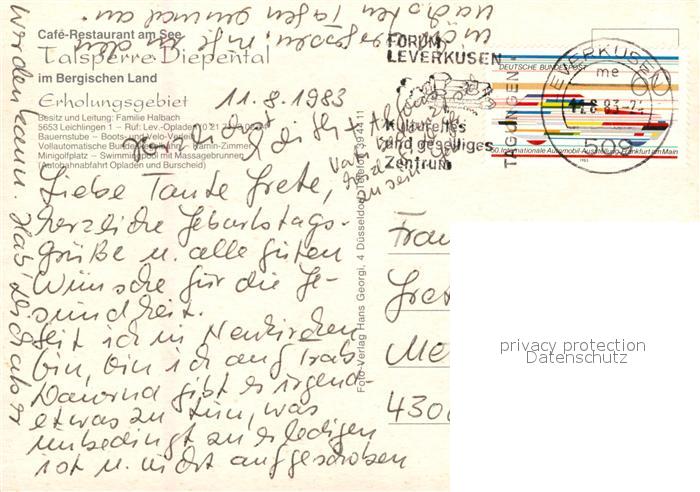 Café-Restaurant am See
Talsperre Diepental
im Bergischen Land
Erholungsgebiet
Besitz und Leitung: Familie Halbach
5653 Leichlingen 1 – Ruf: Lev.-Opladen
Bauernstube – Boots- und Velo-Verleih
Vollautomatische Bundeskegelbahn Kamin-Zimmer
Minigolfplatz – Swimmingpool mit Massagebrunnen
(Autobahnabfahrt Opladen und Burscheid)
11.8.1983
Liebe Tante Grete,
herzliche Geburtstags-
grüße u. alle guten
Wünsche für die Ge-
sundheit.
Seit ich in Neukirchen
bin, bin ich auf Trab.
Dauernd gibt es irgend-
etwas zu tun, was
unbedingt zu erledigen
ist u. nicht aufgeschoben
werden kann.
nächsten Tagen einmal an.
Foto-Verlag Hans Georgi, 4 Düsseldorf, Telefon 394411
FORUM
LEVERKUSEN
Kulturelles
und geselliges
Zentrum
TAGUNGEN
DEUTSCHE BUNDESPOST
60
50. Internationale Automobil-Ausstellung Frankfurt am Main
LEVERKUSEN
me
509
Frau
Grete
Me
430
privacy protection
Datenschutz